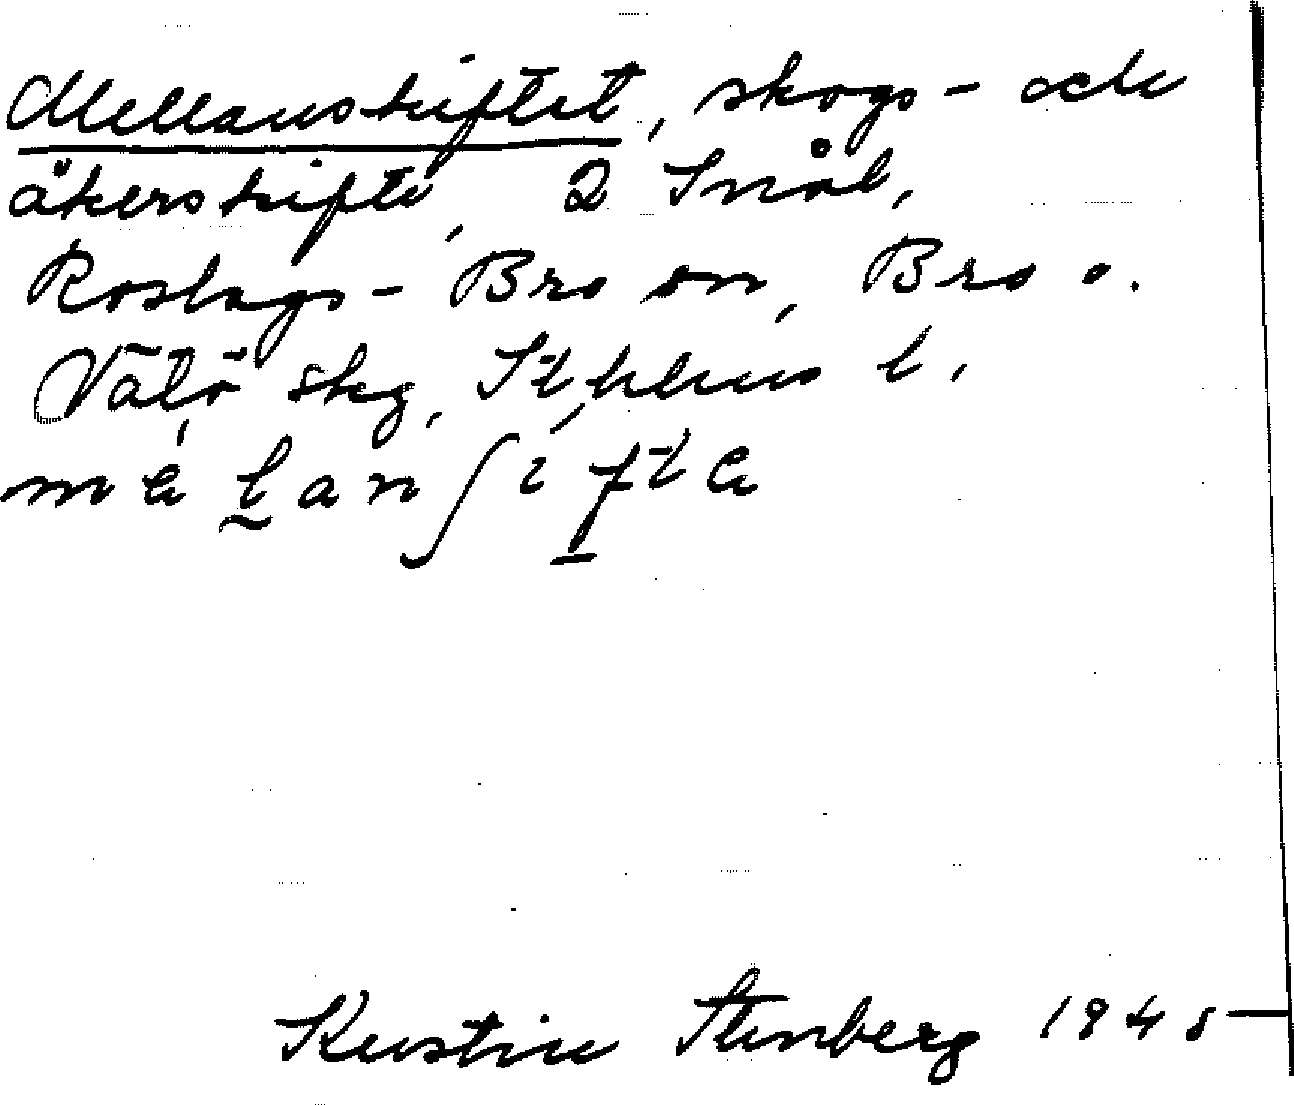 Mellanskiftet, skogs- och
åkerskifte, 2 Snål,
Roslags-Bro sn, Bro o.
Vätö skg, Sthlms l.
Kerstin Stenberg 1945